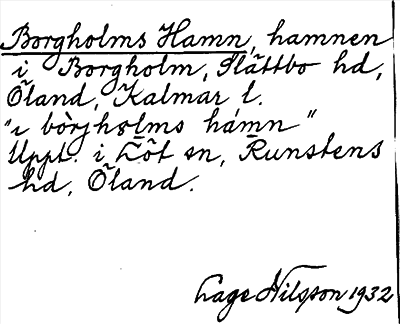 Borgholms Hamn, hamnen
i Borgholm, Slättbo hd,
Öland, Kalmar l.
"ı bòrjhɷlms hámn"
Uppt. i Löt sn, Runstens
hd, Öland.
Lage Nilsson 1932